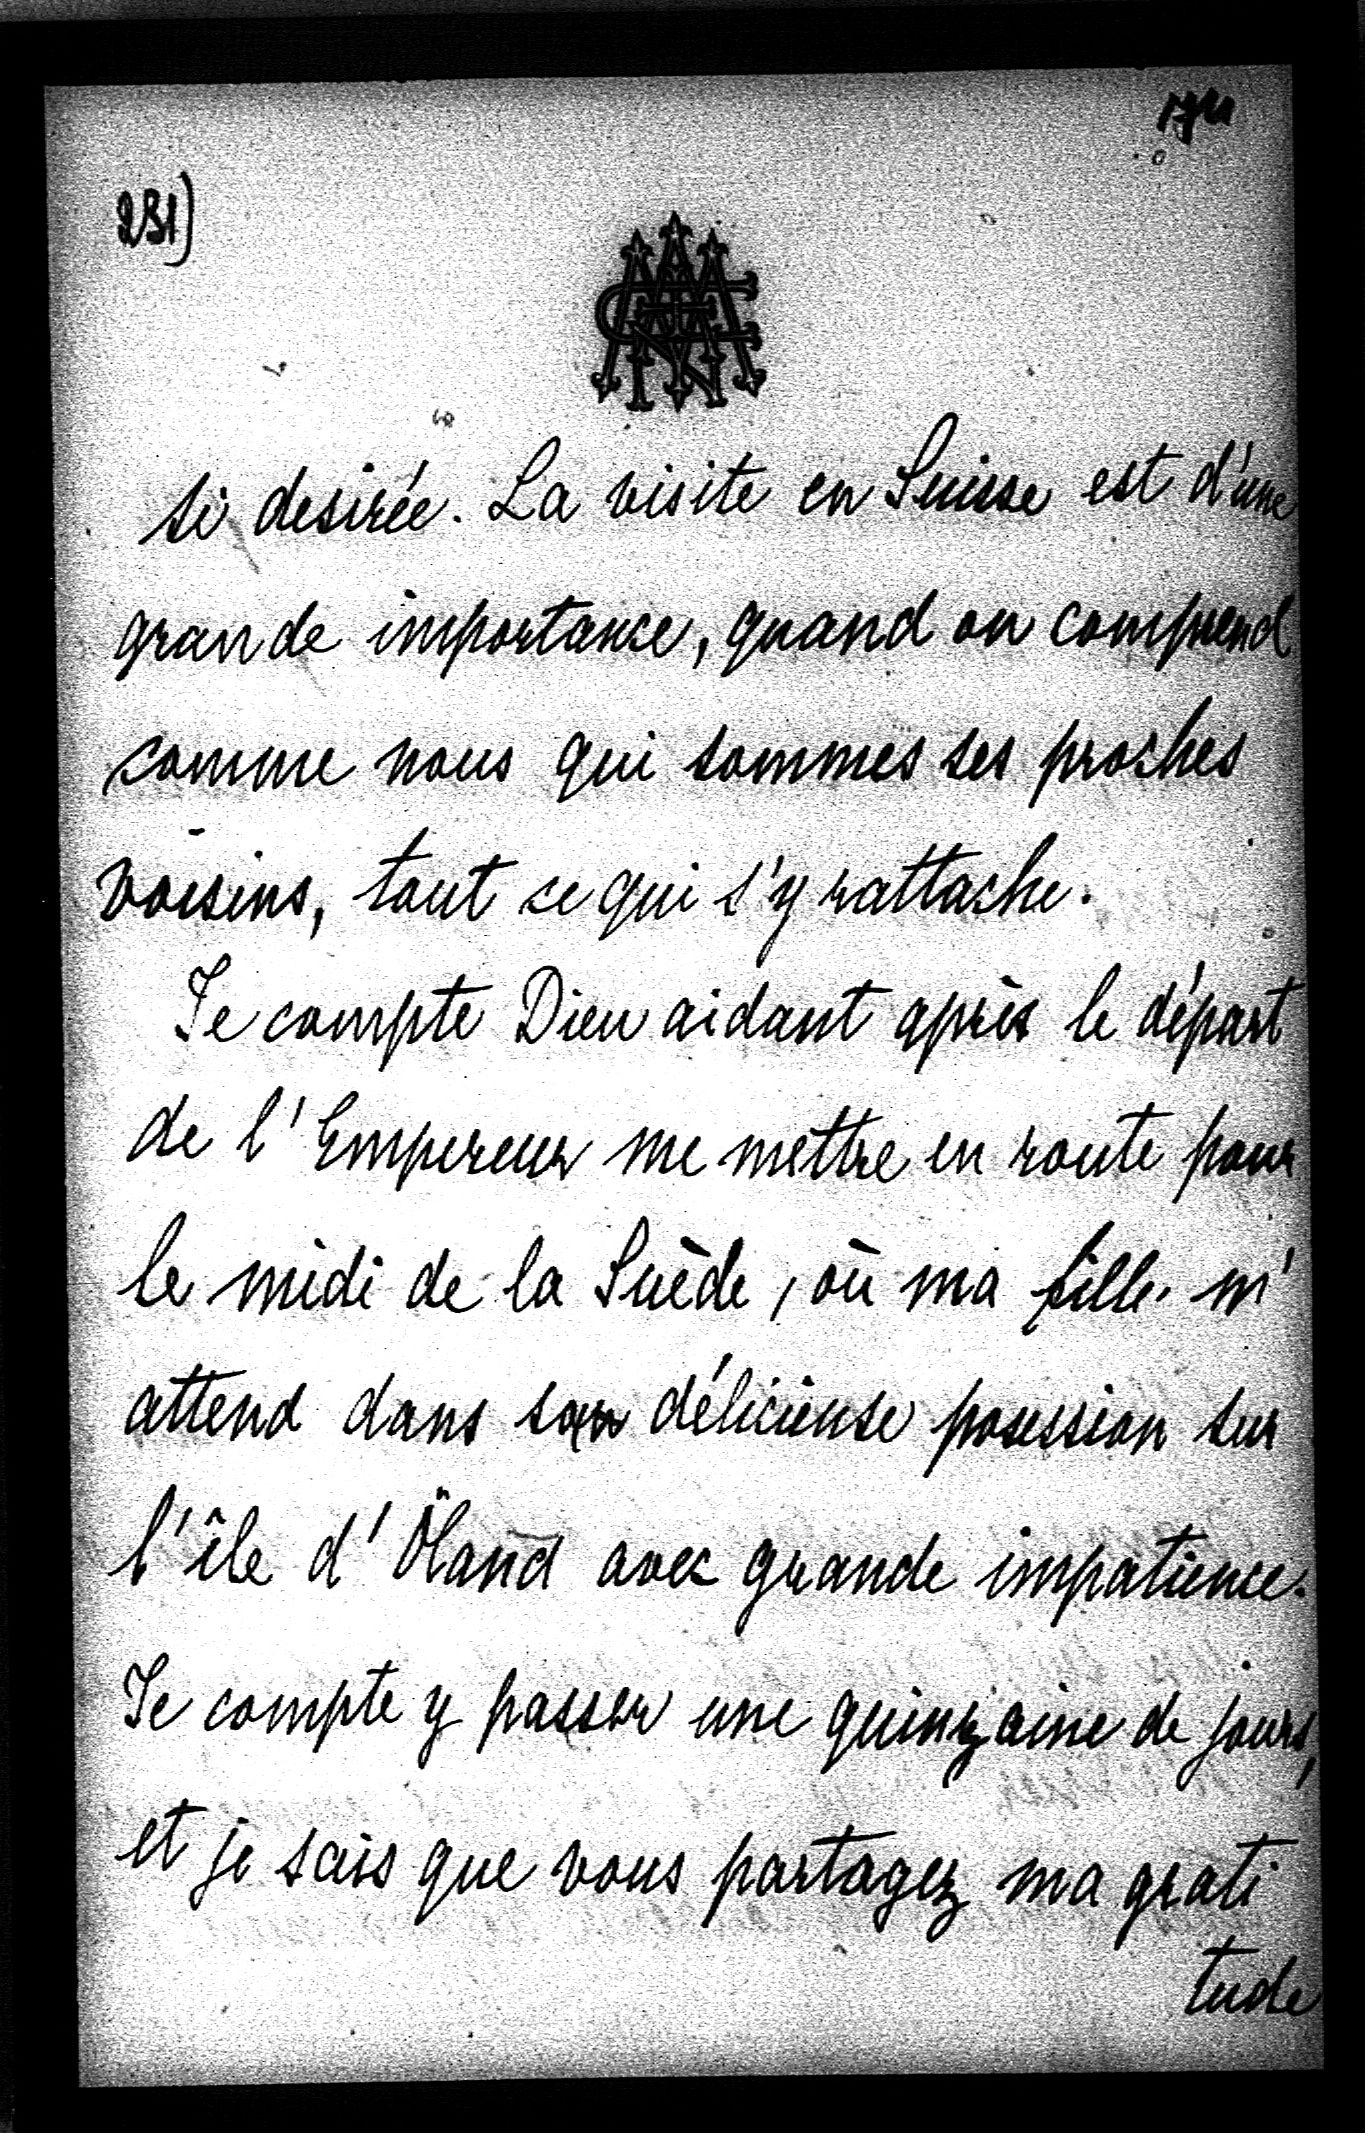 231)
si desirée. La visite en Suisse est d'une
grande importance, quand on comprend
comme nous qui sommes ses proches
voisins, tout ce qui s'y rattache.
Je compte Dieu aidant après le départ
de l'Empereur me mettre en route pour
le midi de la Suède, où ma fille m'
attend dans son délicieuse posession sur
l'île d'Öland avec grande impatience.
Je compte y passer une quinzaine de jours,
et je sais que vous partagez ma grati
tude